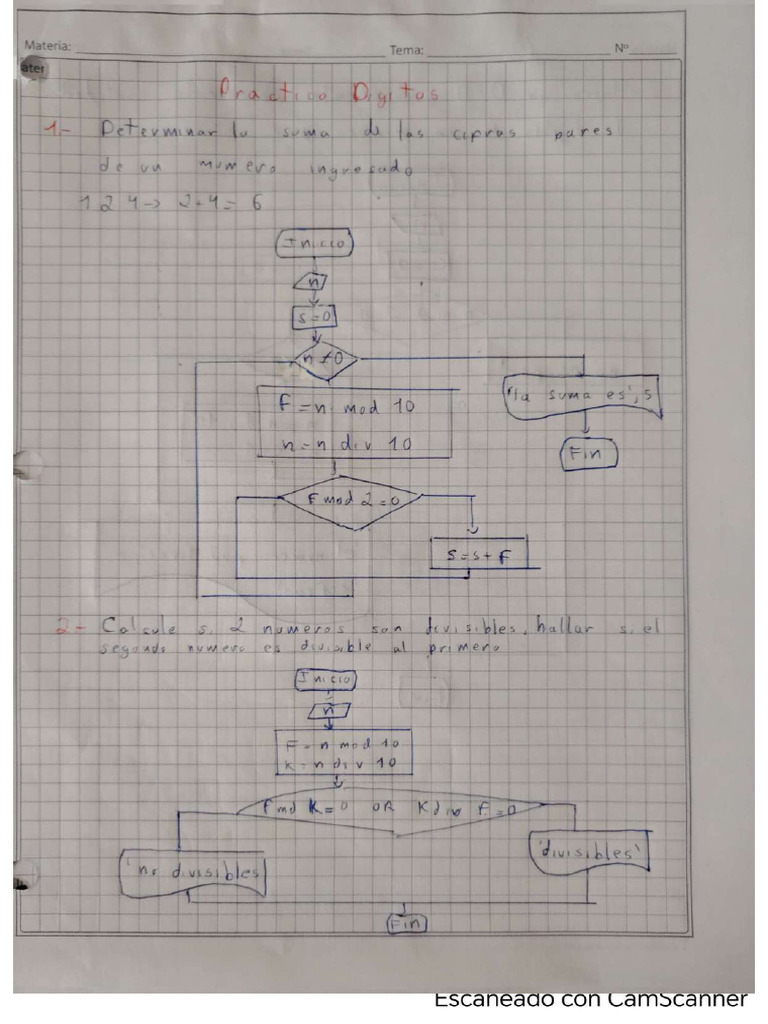 Materia:
Tema:
Nº
ater
Practico Digitos
1.- Determinar la suma de las cifras pares
de un numero ingresado
1 2 4 -> 2+4 = 6
Inicio
n
s=0
n ≠ 0
F = n mod 10
n = n div 10
"la suma es", s
Fin
F mod 2 = 0
s = s + F
2- Calcule si 2 numeros son divisibles, hallar si el
segundo numero es divisible al primero
Inicio
n
F = n mod 10
K = n div 10
F md K = 0 OR K div F = 0
'no divisibles
'divisibles'
Fin
Escaneado con CamScanner